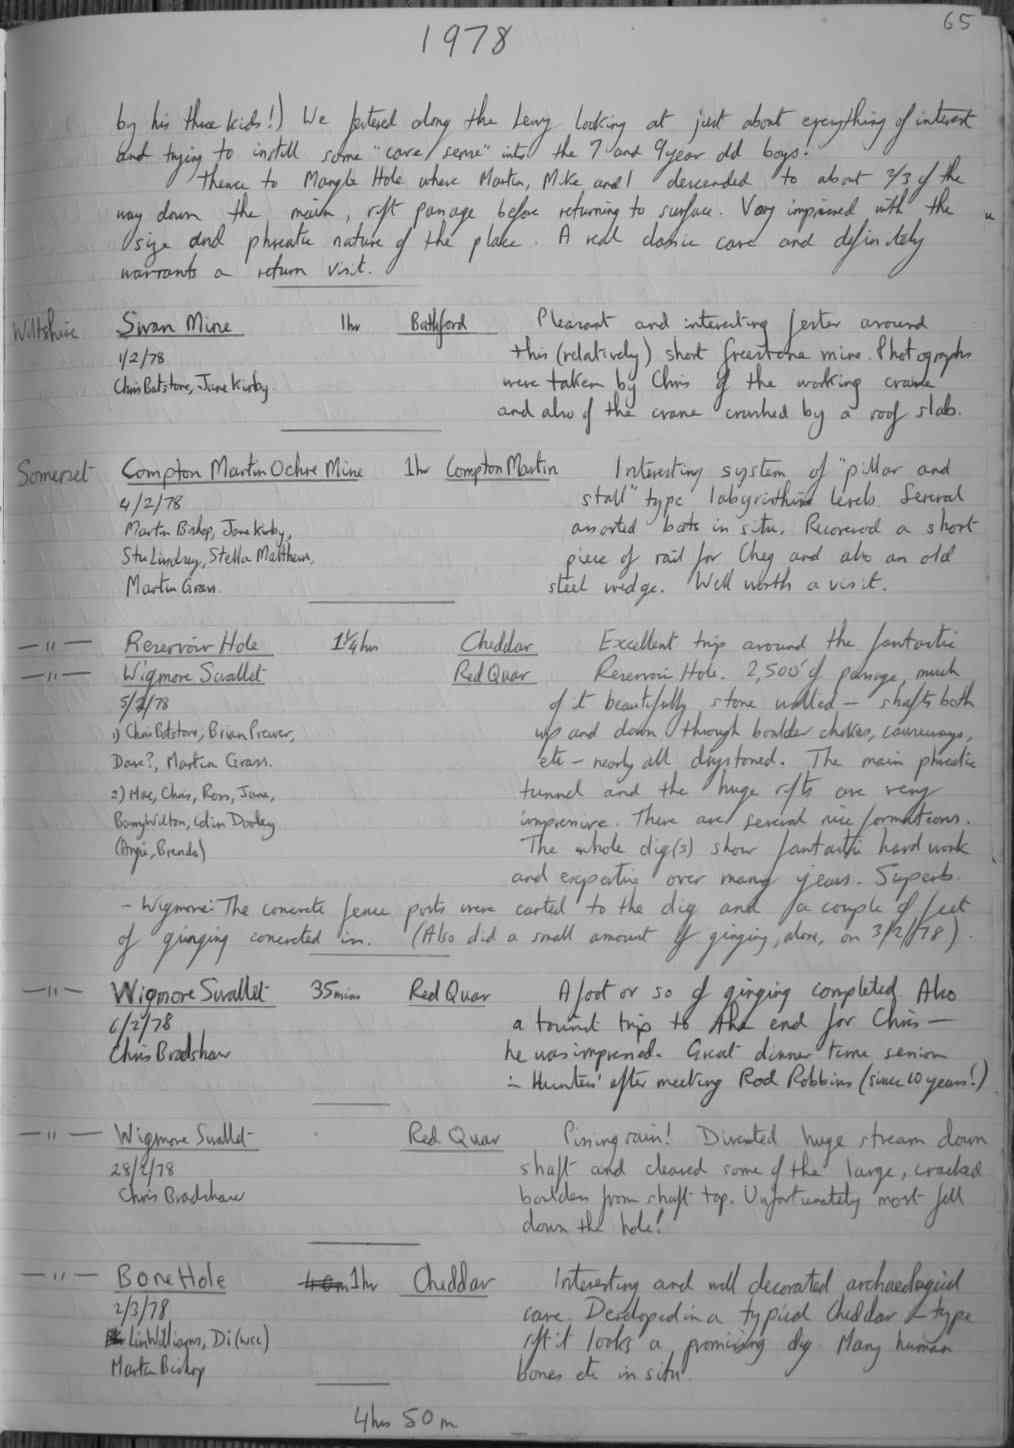 65
1978
by his three kids!) We fettered along the Levy looking at just about everything of interest
and trying to instill some "cave sense" into the 7 and 9 year old boys!
Thence to Mangle Hole where Martin, Mike and I descended to about 2/3 of the
way down the main, rift passage before returning to surface. Very impressed with the
size and phreatic nature of the place. A real classic cave and definitely
warrants a return visit.
Wiltshire Swan Mine 1hr Bathford Pleasant and interesting fester around
1/2/78 this (relatively) short freestone mine. Photographs
Chris Batstone, Jane Kirby were taken by Chris of the working crane
and also of the crane crushed by a roof slab.
Somerset Compton Martin Ochre Mine 1hr Compton Martin Interesting system of "pillar and
4/2/78 stall" type labyrinthine levels. Several
Martin Bishop, Jane Kirby, assorted bats in situ. Recovered a short
Stu Lindsey, Stella Matthews, piece of rail for Cheg and also an old
Martin Grass. steel wedge. Well worth a visit.
—"— Reservoir Hole 1¼hrs Cheddar Excellent trip around the fantastic
—"— Wigmore Swallet Red Quar Reservoir Hole. 2,500' of passage, much
5/2/78 of it beautifully stone walled – shafts both
1) Chris Batstone, Brian Prewer, up and down through boulder chokes, causeways,
Dave?, Martin Grass. etc – nearly all drystoned. The main phreatic
2) Mac, Chas, Ross, Jane, tunnel and the huge rifts are very
Barry Wilton, Colin Dooley impressive. There are several nice formations.
(Angie, Brenda) The whole dig(s) show fantastic hard work
and expertise over many years. Superb.
– Wigmore: The concrete fence posts were carted to the dig and a couple of feet
of ginging concreted in. (Also did a small amount of ginging, alone, on 3/2/78).
—"— Wigmore Swallet 35mins Red Quar A foot or so of ginging completed Also
6/2/78 a tourist trip to the end for Chris –
Chris Bradshaw he was impressed. Great dinner time session
in Hunters' after meeting Rod Robbins (since 10 years!)
—"— Wigmore Swallet Red Quar Pissing rain! Diverted huge stream down
28/2/78 shaft and cleared some of the large, cracked
Chris Bradshaw boulders from shaft top. Unfortunately most fell
down the hole!
—"— Bone Hole 1hr Cheddar Interesting and well decorated archaeological
2/3/78 cave. Developed in a typical Cheddar - type
Lin Williams, Di (wcc) rift it looks a promising dig Many human
Martin Bishop bones etc in situ.
4hrs 50m